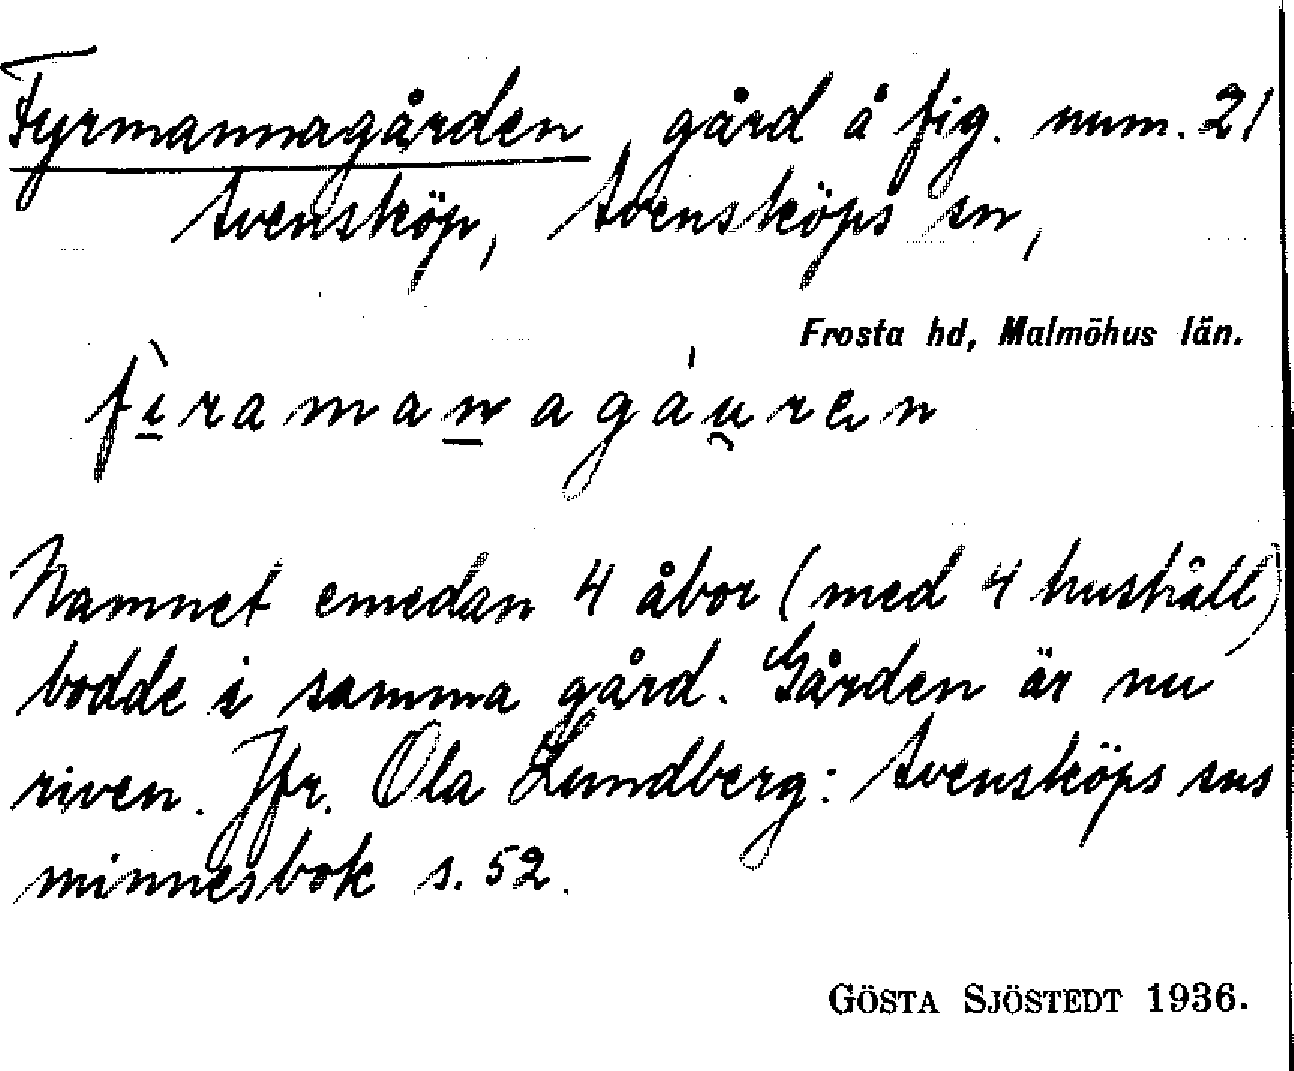 Fyrmannagården, gård å fig. num. 21
Svensköp, Svensköps sn,
Frosta hd, Malmöhus län.
fìramanagáu̯ren
Namnet emedan 4 åbor (med 4 hushåll)
bodde i samma gård. Gården är nu
riven. Jfr. Ola Lundberg: Svensköps sns
minnesbok s. 52.
GÖSTA SJÖSTEDT 1936.